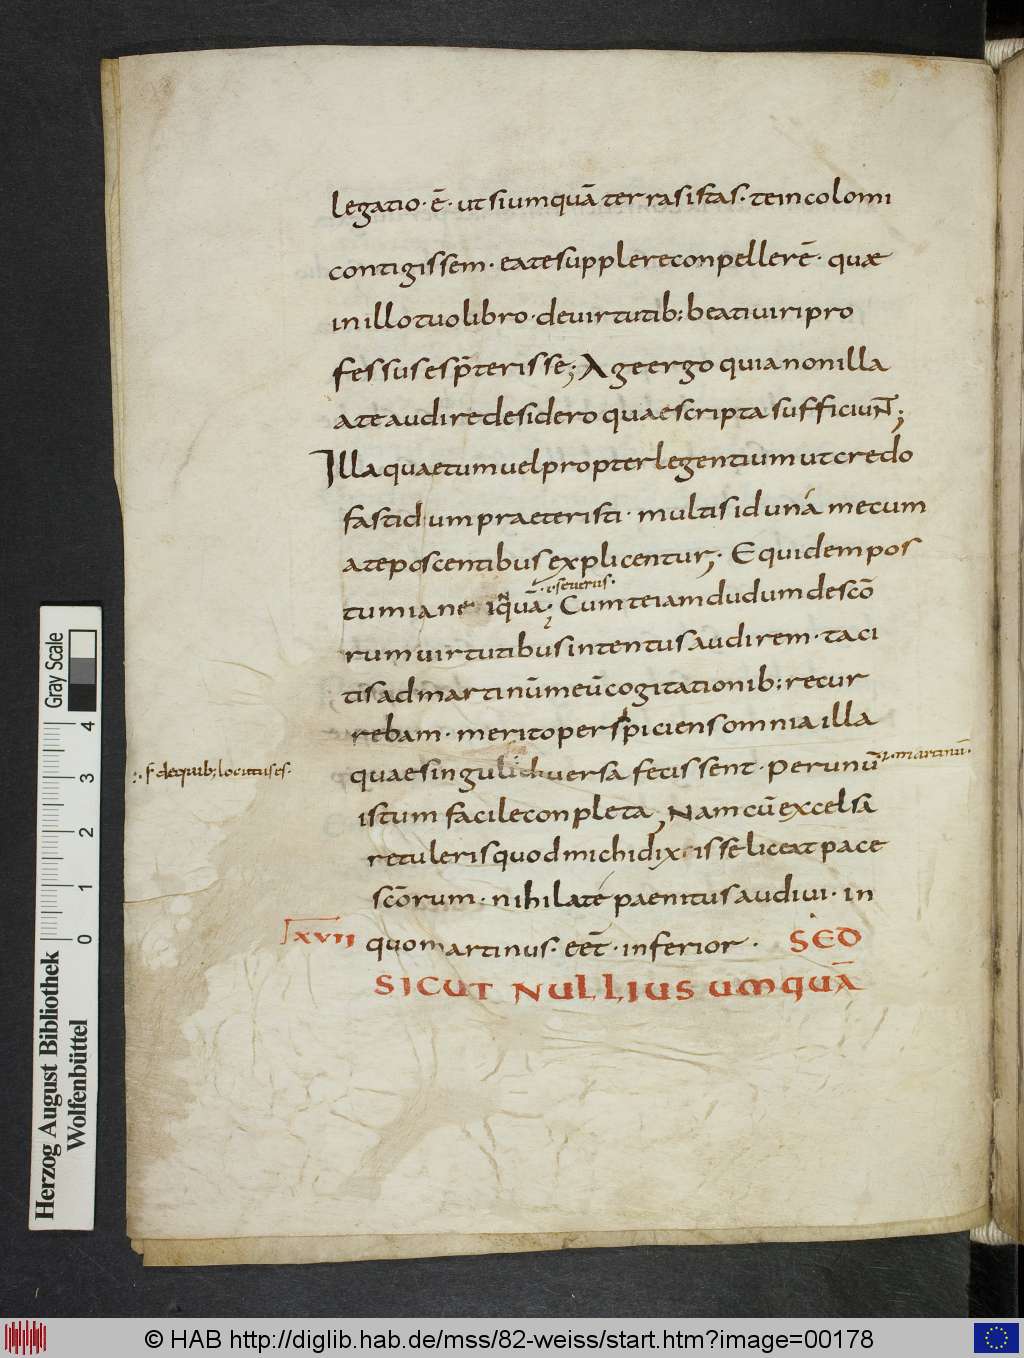 legatio · ē · ut si umquā terras istas · te incolomi
contigissem · ea te supplere conpellerē · quæ
in illo tuo libro · de virtutib; beati viri pro
fessus es p̄terisse; Age ergo quia non illa
a te audire desidero quae scripta sufficiuN̄;
Illa quae tum vel propter legentium ut credo
fastidium praeteristi · multis id unā mecum
a te poscentibus explicentur; Equidem pos
·i·severus·
tumiane iqͫuā; Cum te iam dudum de scō
rum virtutibus intentus audirem · taci
tis ad martinū meū cogitationib; recur
rebam · merito perspiciens omnia illa
∴ s̄ de quib; locutus es·
quae singuli diversa fecissent · per unū
·i·martinū·
istum facile conpleta; Nam cū excelsa
retuleris quod michi dixisse liceat pace
scōrum · nihil a te paenitus audivi · in
LXVII quo martinus · eēt · inferior · SED
SICUT NULLIUS UMQUĀ
Herzog August Bibliothek
Wolfenbüttel
Gray Scale
0 1 2 3 4
© HAB http://diglib.hab.de/mss/82-weiss/start.htm?image=00178